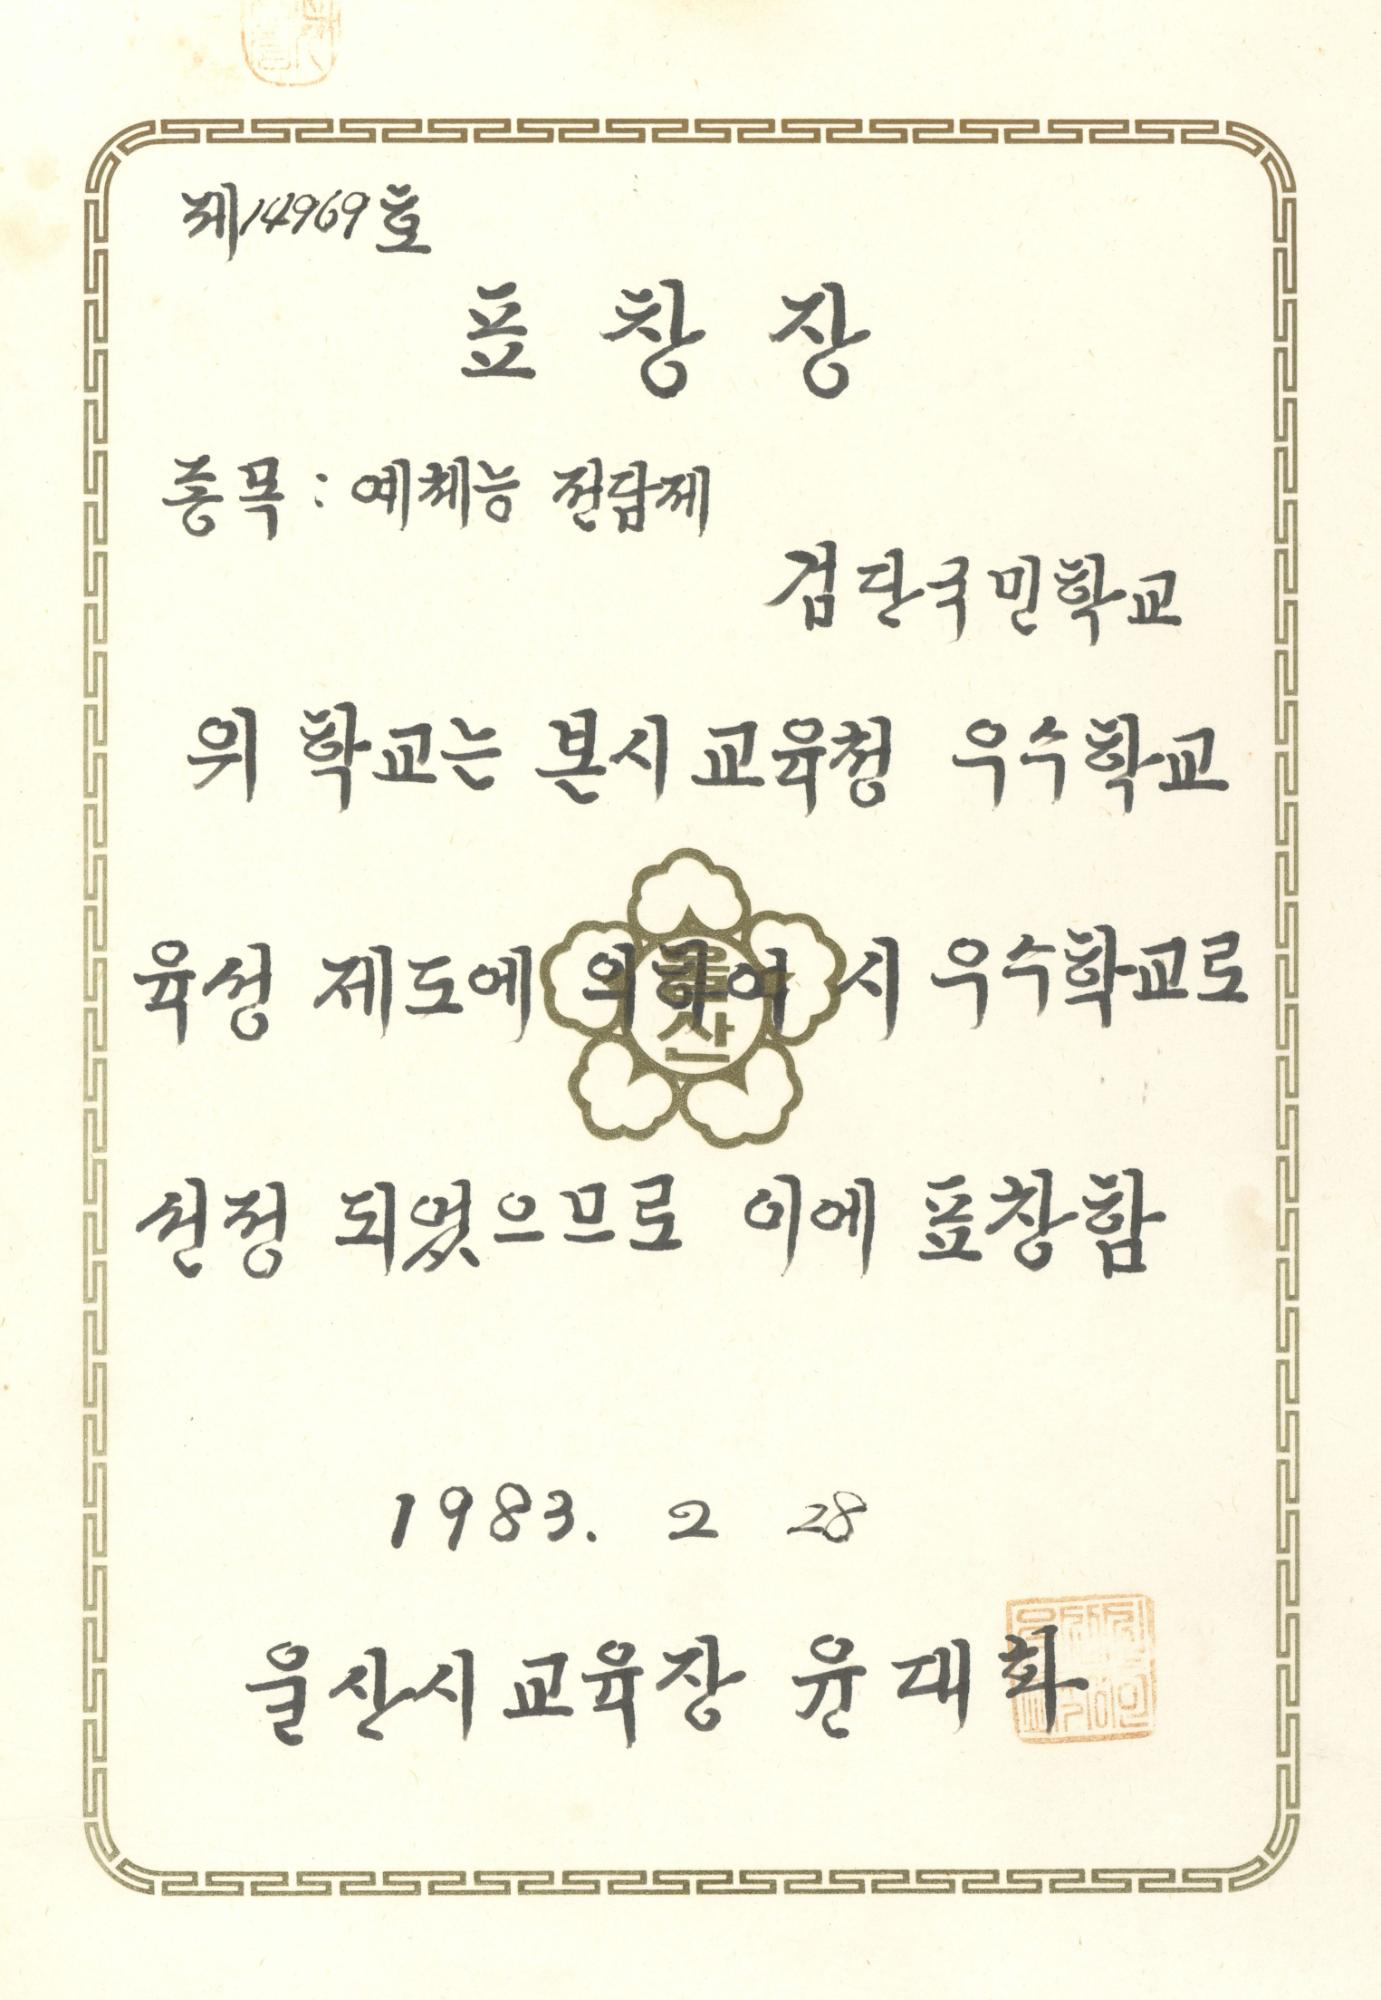 제14969호
표창장
종목 : 예체능 전담제
검단국민학교
위 학교는 본시 교육청 우수학교
육성 제도에 의하여 시 우수학교로
울산
선정 되였으므로 이에 표창함
1983. 2 28
울산시교육장 윤대화